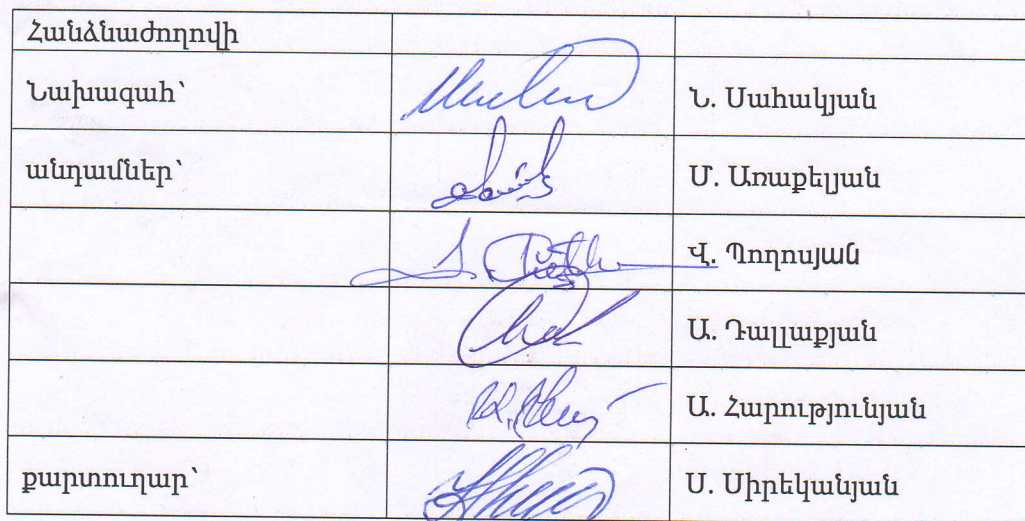 Հանձնաժողովի
Նախագահ՝ Ն. Սահակյան
անդամներ՝ Մ. Առաքելյան
Վ. Պողոսյան
Ա. Դալլաքյան
Ա. Հարությունյան
քարտուղար՝ Ս. Սիրեկանյան